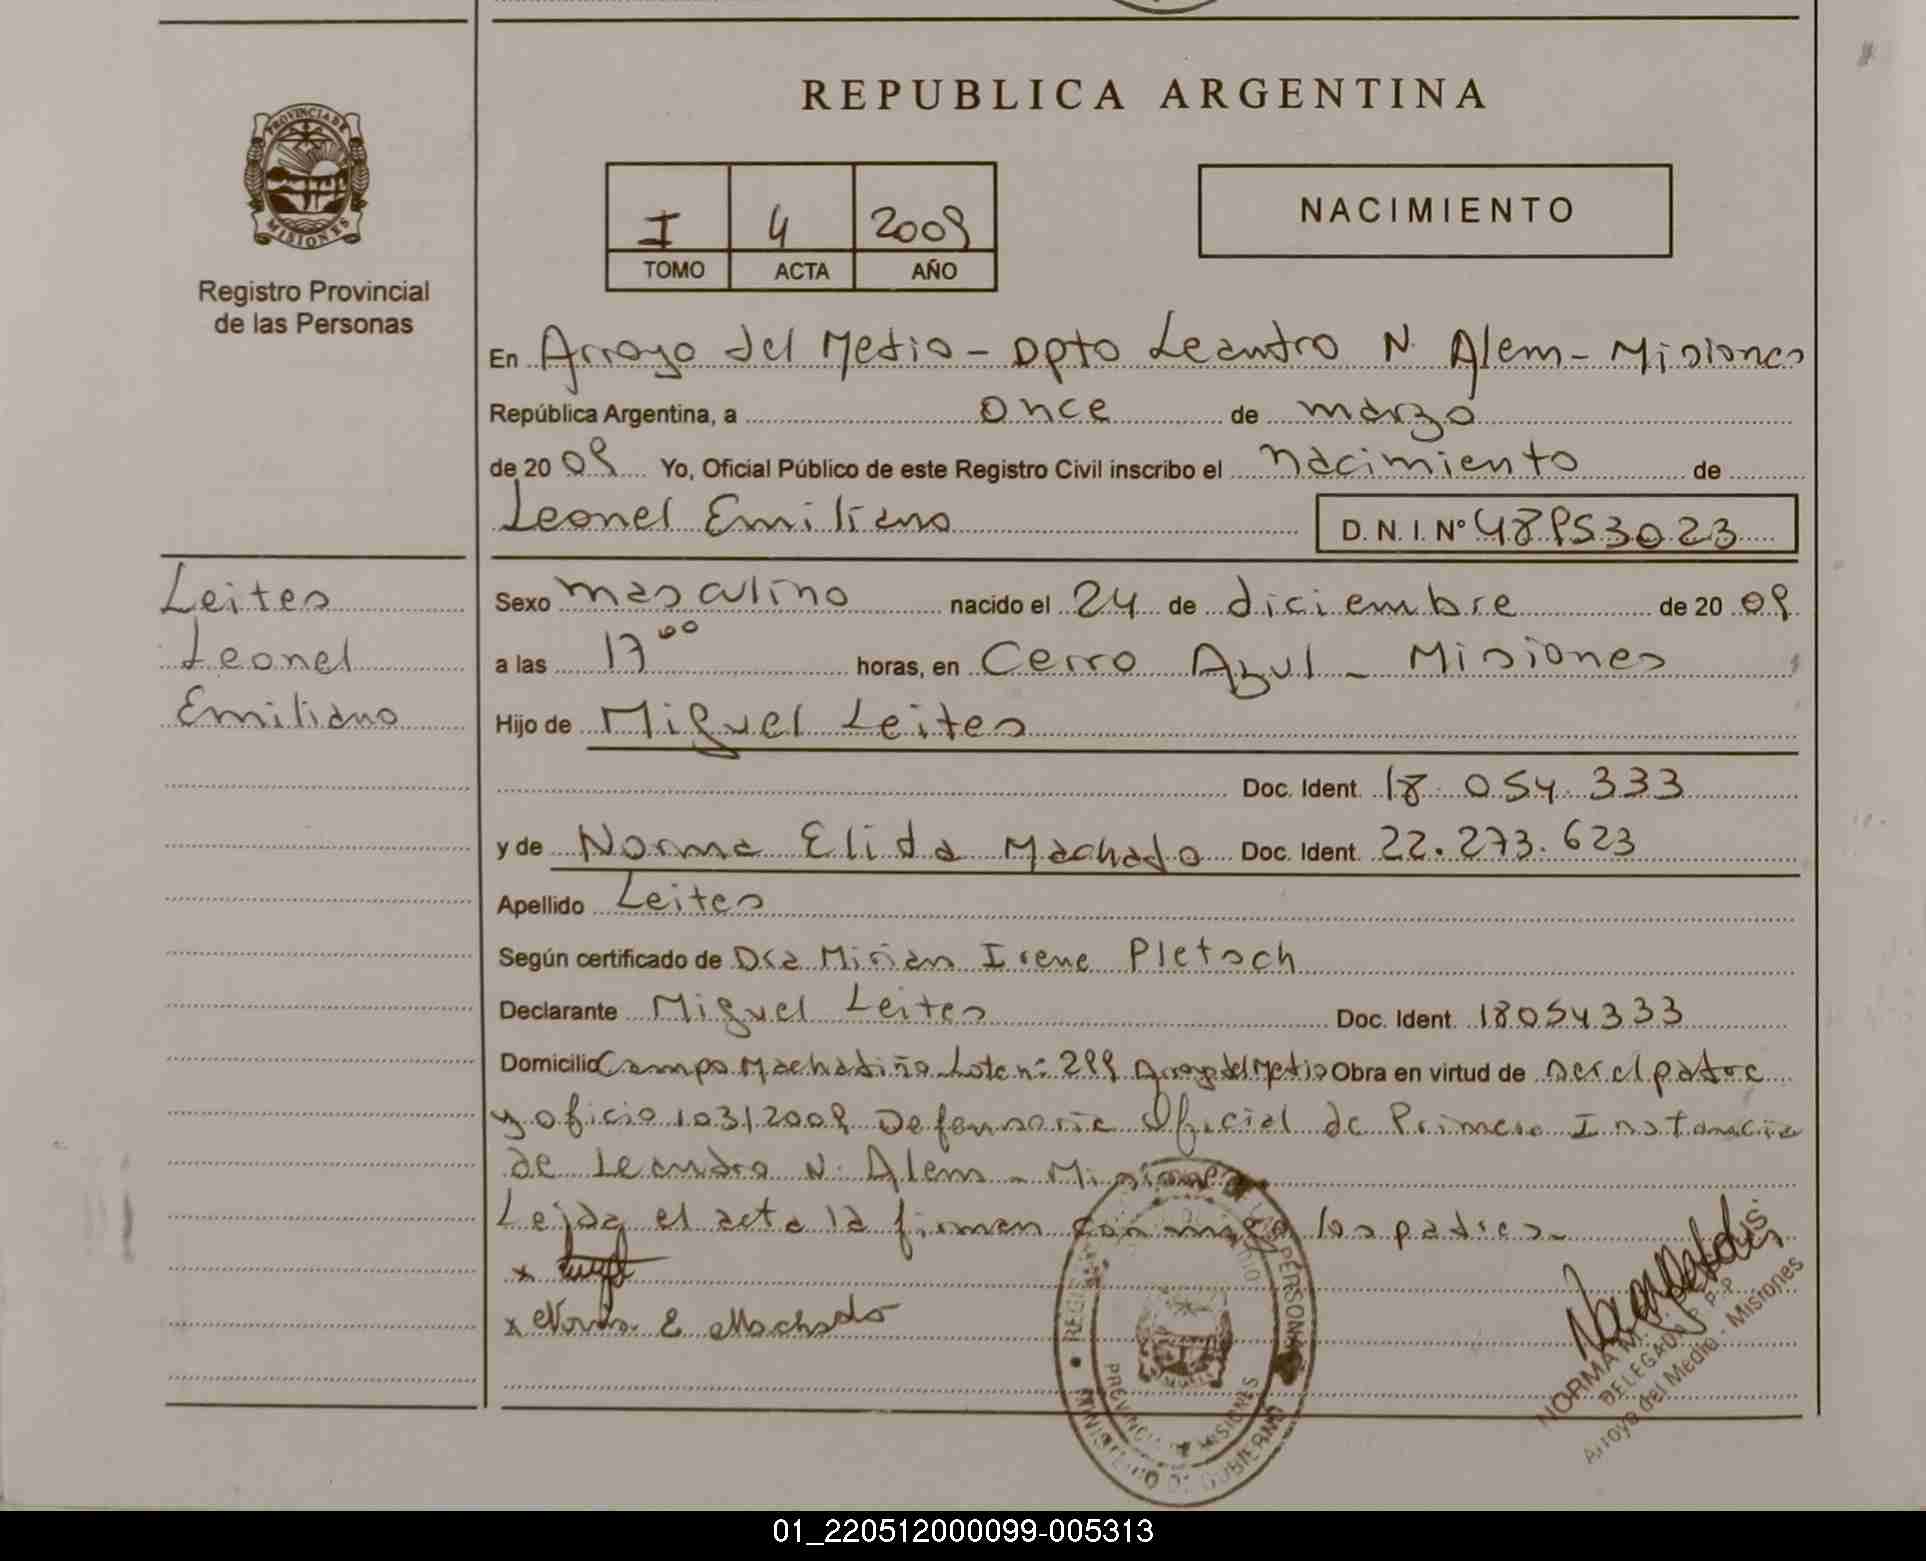 REPUBLICA ARGENTINA
PROVINCIA DE MISIONES
Registro Provincial
de las Personas
I 4 2009
TOMO ACTA AÑO
NACIMIENTO
En Arroyo del Medio - Dpto Leandro N. Alem - Misiones
República Argentina, a once de marzo
de 2009 Yo, Oficial Público de este Registro Civil inscribo el nacimiento de
Leonel Emiliano D. N. I. Nº 48953023
Leites
Leonel
Emiliano
Sexo masculino nacido el 24 de diciembre de 2009
a las 17 00 horas, en Cerro Azul - Misiones
Hijo de Miguel Leites
Doc. Ident. 18.054.333
y de Norma Elida Machado Doc. Ident. 22.273.623
Apellido Leites
Según certificado de Dra Mirian Irene Pletsch
Declarante Miguel Leites Doc. Ident. 18054333
Domicilio Campo Machadiño Lote nº 299 Arroyo del Medio Obra en virtud de ser el padre
y oficio 103/2009 Defensoria Oficial de Primera Instancia
de Leandro N. Alem - Misiones
Leida el acta la firman conmigo los padres.-
x
x Norma E Machado
REGISTRO DE LAS PERSONAS
PROVINCIA DE MISIONES
MINISTERIO DE GOBIERNO
NORMA M.
DELEGADA R.P.P.
Arroyo del Medio - Misiones
01_220512000099-005313